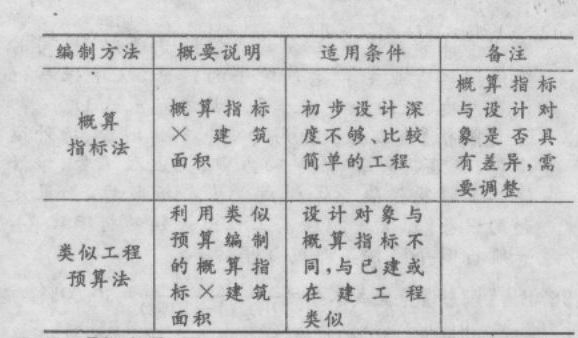 编制方法 概要说明 适用条件 备注
概算
指标法
概算指标
×建筑
面积
初步设计深
度不够、比较
简单的工程
概算指标
与设计对
象是否具
有差异,需
要调整
类似工程
预算法
利用类似
预算编制
的概算指
标×建筑
面积
设计对象与
概算指标不
同,与已建或
在建工程
类似